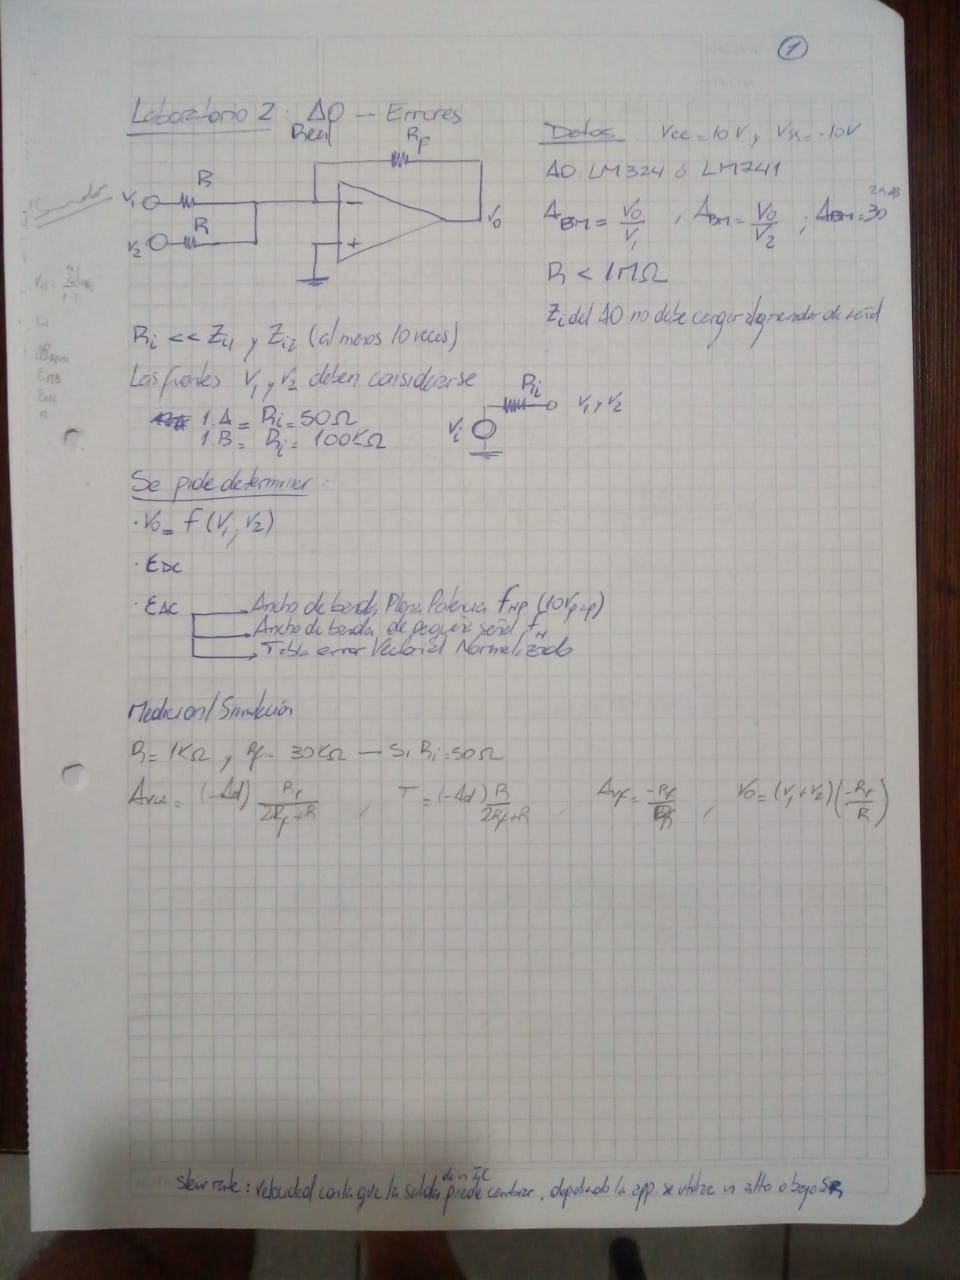 1
Laboratorio 2: AO — Errores
Real
Rf
R
V1
R
V2
Vo
Datos Vcc=10V y Vss=-10V
AO: LM324 ó LM741
ABM = Vo/V1 , ABM = Vo/V2 ; ABM=30
R < 1MΩ
Zi del AO no debe cargar al generador de señal
Ri << Zi1 y Zi2 (al menos 10 veces)
Las fuentes V1 y V2 deben considerarse
Ri
V1 y V2
Vi
1.A = Ri=50Ω
1.B = Ri= 100KΩ
Se pide determinar:
·Vo= f(V1, V2)
·EDC
·EAC
Ancho de banda Plena Potencia fHP (10Vp-p)
Ancho de banda de pequeña señal fH
Tabla error Vectorial Normalizado
Medicion/Simulación
R= 1KΩ y Rf= 30KΩ — Si Ri=50Ω
= (-Ad) Rf/(2Rf+R) , T=(-Ad) R/(2Rf+R) , Avf=-Rf/R , Vo=(V1+V2)(-Rf/R)
Slew rate: velocidad con la que la salida de un IC puede cambiar, dependiendo la app. se utiliza un alto o bajo SR